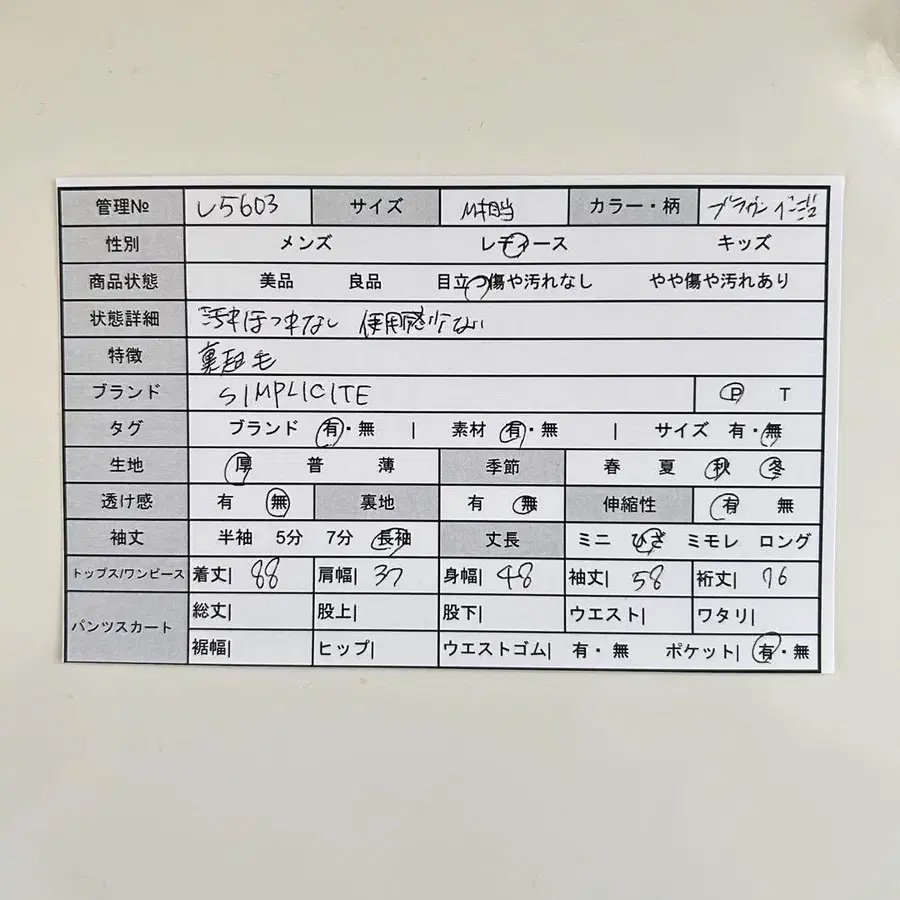 管理№ L5603 サイズ M相当 カラー・柄 ブラウン
性別 メンズ レディース キッズ
商品状態 美品 良品 目立つ傷や汚れなし やや傷や汚れあり
状態詳細 汚れほつれなし 使用感少ない
特徴 裏起毛
ブランド SIMPLICITE P T
タグ ブランド 有・無 | 素材 有・無 | サイズ 有・無
生地 厚 普 薄 季節 春 夏 秋 冬
透け感 有 無 裏地 有 無 伸縮性 有 無
袖丈 半袖 5分 7分 長袖 丈長 ミニ ひざ ミモレ ロング
トップス/ワンピース 着丈| 88 肩幅| 37 身幅| 48 袖丈| 58 裄丈| 76
パンツスカート 総丈| 股上| 股下| ウエスト| ワタリ|
裾幅| ヒップ| ウエストゴム| 有・無 ポケット| 有・無